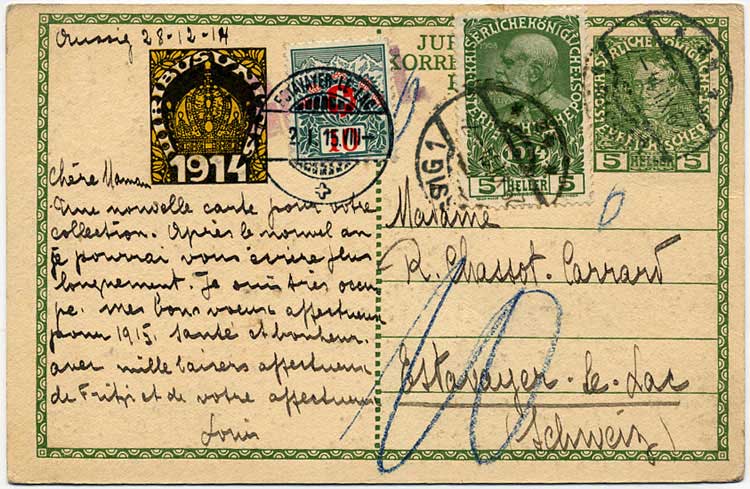 Aussig 28-12-14
VIRIBUS UNITIS
1914
ESTAVAYER-LE-LAC
2.I.15.VIII-
10
KAISERLICHE KÖNIGLICHE ÖSTERR
1908
1914
5 HELLER 5
5 HELLER 5
JU
KORRE
SSIG 1
Chère Maman
Une nouvelle carte pour votre
collection. Après le nouvel an
je pourrai vous écrire plus
longuement. Je suis très occu
pé. Mes bons voeux affectueux
pour 1915. Santé et bonheur.
avec mille baisers affectueux
de Fritzi et de votre affectueux
Louis
Madame
R. Chassot-Carrard
Estavayer-le-Lac
(Schweiz)
10